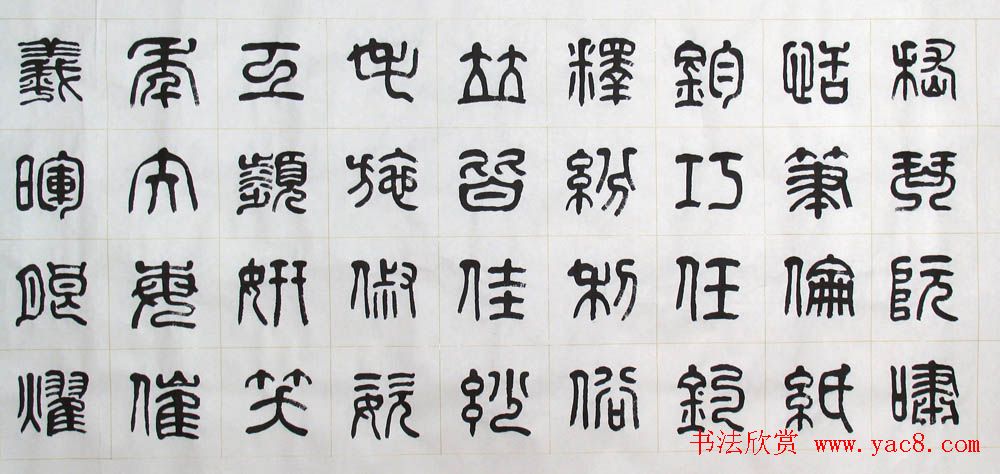 嵇琴阮嘯
恬筆倫紙
鈞巧任釣
釋紛利俗
竝皆佳妙
毛施俶姿
工顰妍笑
年矢每催
羲暉朗燿
书法欣赏 www.yac8.com